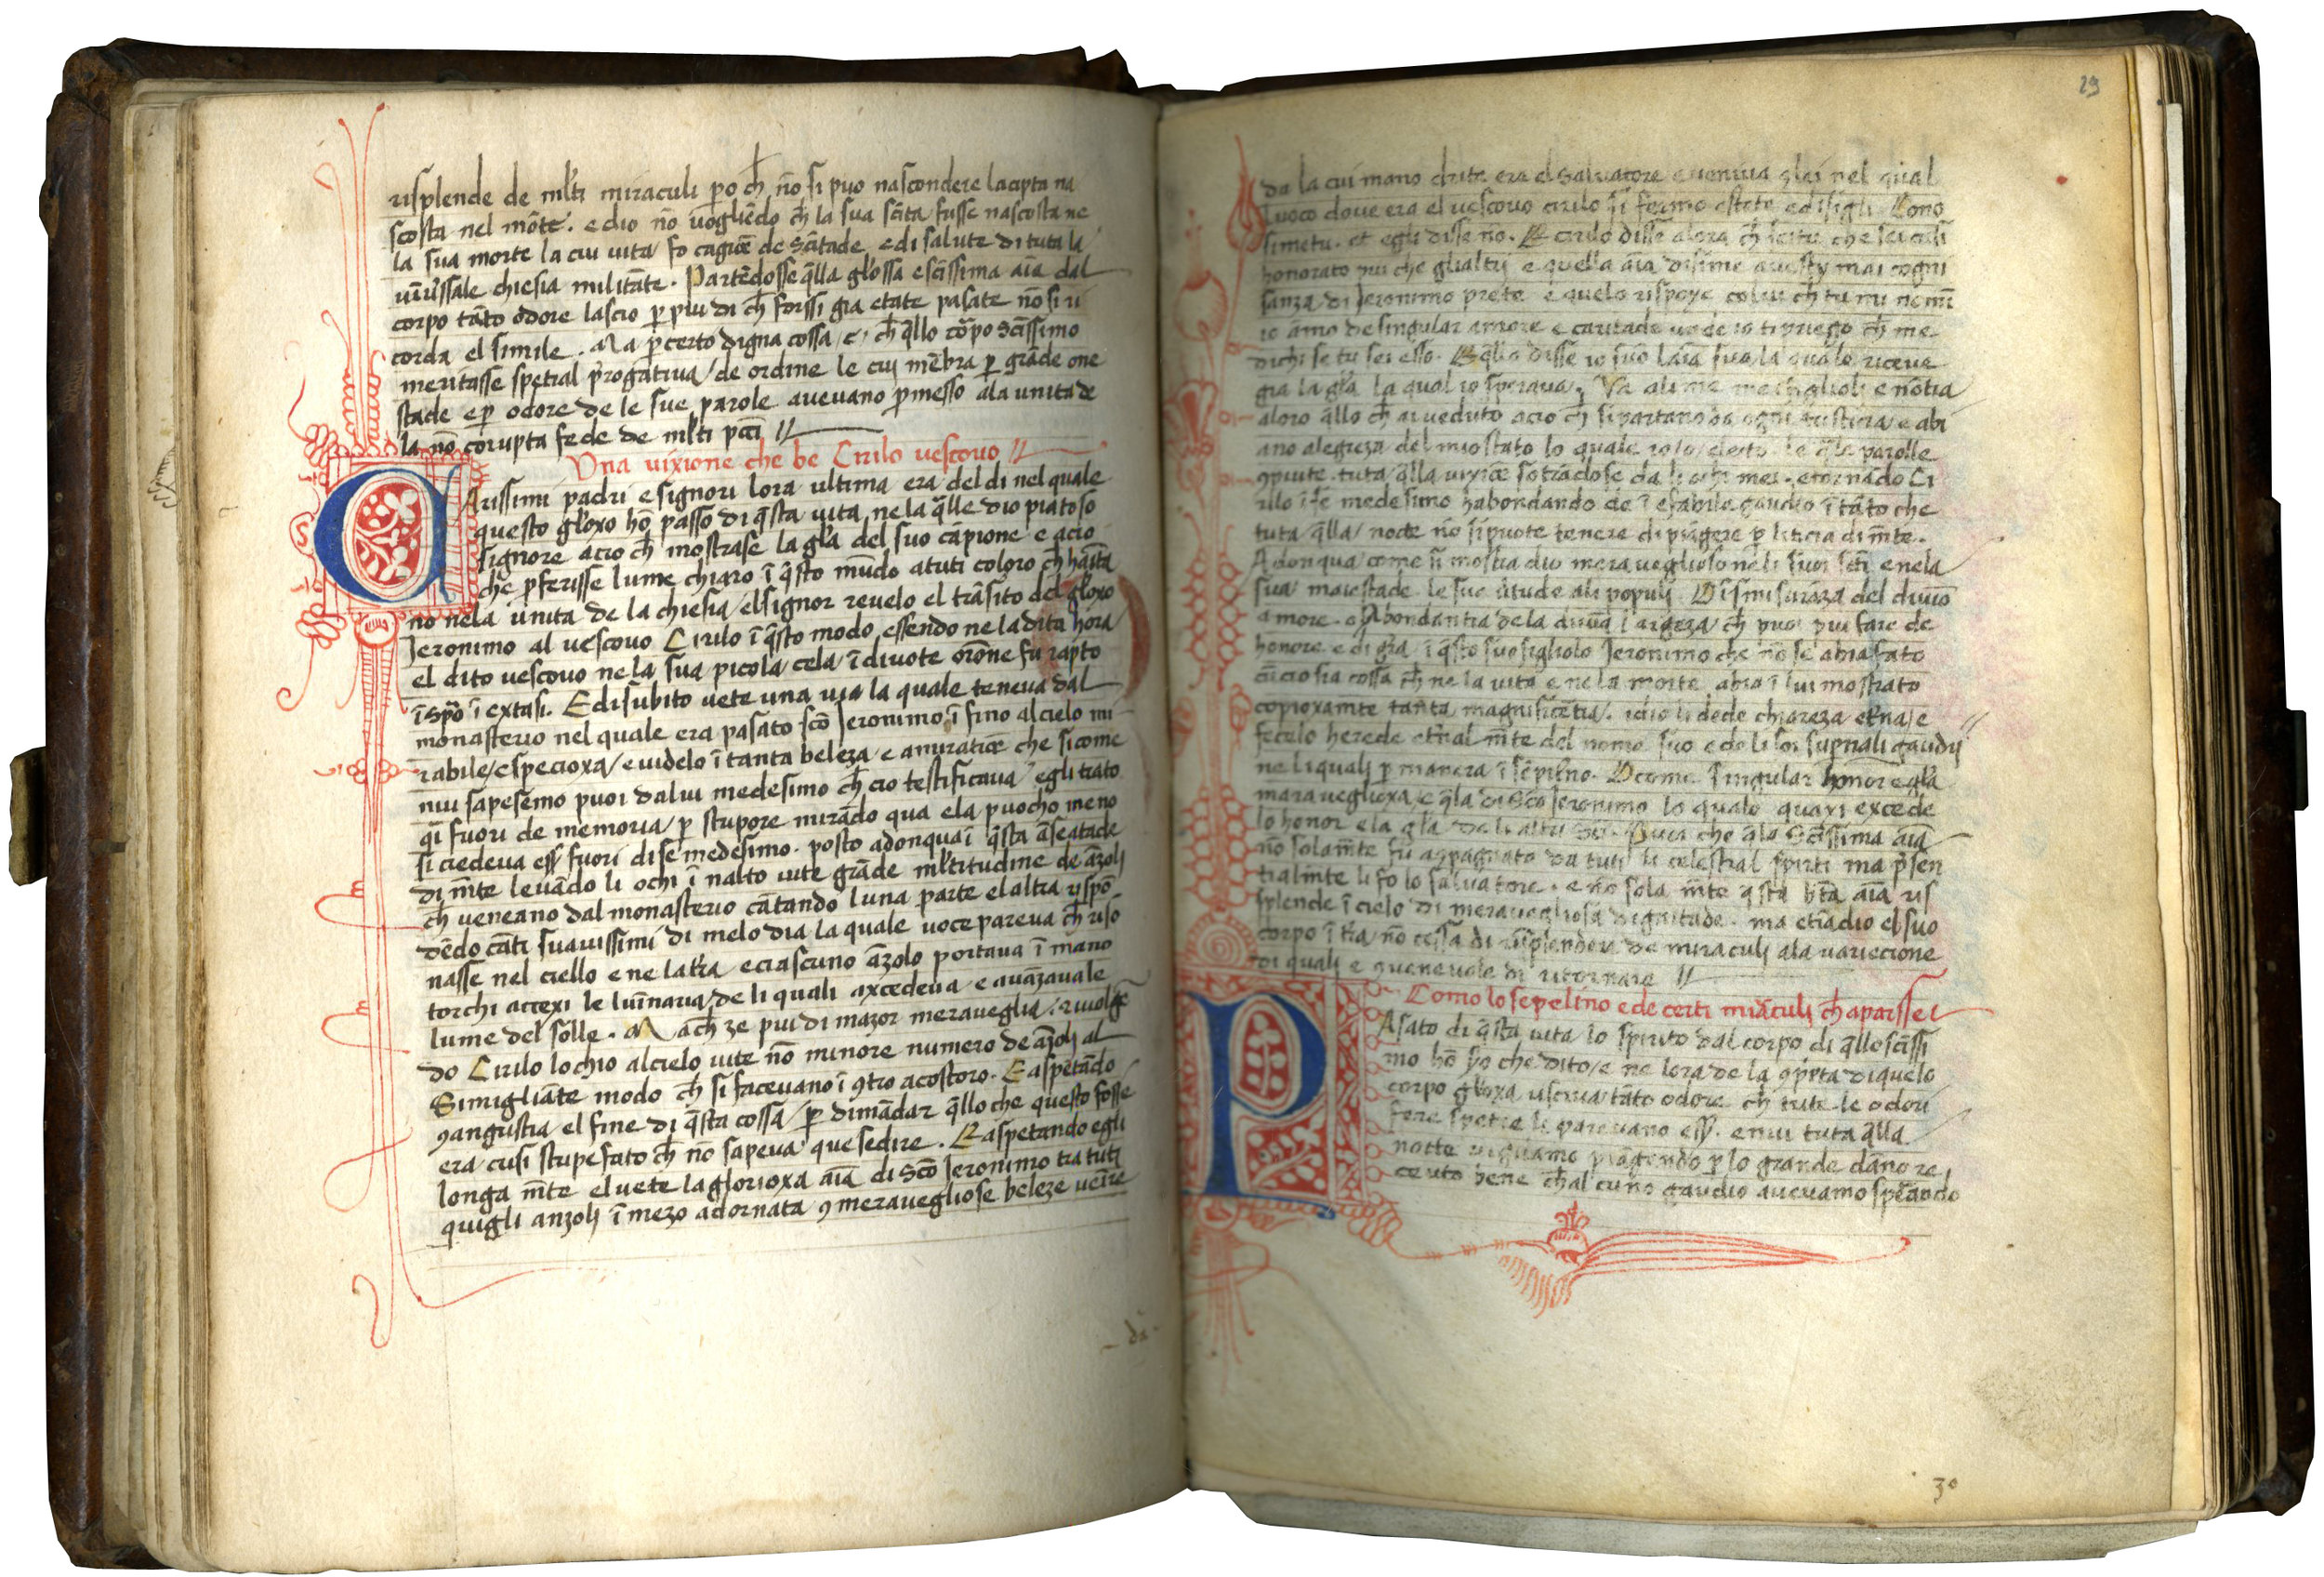 risplende de mlti miraculi po ch no si puo nascondere la cipta na
scosta nel mote. e dio no vogliedo ch la sua scita fusse nascosta ne
la sua morte la cui vita fo cagioe de scitade e di salute di tuta la
universale chiesia militate. Partedosse qlla glosa e scissima aia dal
corpo tato odore lascio p piu di ch forssi gia etate pasate no si ri
corda el simile. Ma p certo digna cossa e, ch qllo corpo scissimo
meritasse spetial progativa de ordine le cui mebra p grade one
stade e p odore de le sue parole avevano pmesso ala unitade
la no corupta fede de mlti pcci //
Una vixione che be Cirilo vescovo //
Carissimi padri e signori lora ultima era del di nel quale
questo gloxo ho passo di qsta vita ne la qlle dio piatoso
signore acio ch mostrase la gla del suo capione e acio
che pferisse lume chiaro i qsto mudo a tuti coloro ch habita
no nela unita de la chiesia el signor revelo el trasito del gloxo
Jeronimo al vescovo Cirilo i qsto modo essendo ne la dita hora
el dito vescovo ne la sua picola cela i divote orone fu rapto
i spo i extasi. E di subito vete una via la quale teneva dal
monasterio nel quale era pasato sco Jeronimo i fino al cielo mi
rabile e specioxa e videlo i tanta beleza e amiratioe che si come
nui sapesemo puoi da lui medesimo ch cio testificava egli trato
qi fuori de memoria p stupore mirado qua e la puocho meno
si credeva ess fuori di se medesimo. posto adonqua i qsta aseatade
di mte levado li ochi i nalto vite grade mltitudine de azoli
ch veneano dal monasterio catando luna parte el altra rispo
dedo cati suavissimi di melodia la quale voce pareva ch riso
nasse nel ciello e ne la tra e ciascuno azolo portava i mano
torchi accexi le luinaria de li quali axcedeva e avazavale
lume del solle. Ma ach ze piu di mazor meraveglia. rivolge
do Cirilo lochio al cielo vite no minore numero de azoli al
Simigliate modo ch si facevano i 9tro a costoro. E aspetado
9 angustia el fine di qsta cossa p dimadar qllo che questo fosse
era cusi stupefato ch no sapeva que se dire. E aspetando egli
longa mte el vete la glorioxa aia di sco Jeronimo tra tuti
quigli anzoli i mezo adornata 9 meravegliose beleze venire
da
29
da la cui mano drita era el salvatore e veniva glai nel qual
luoco dove era el vescovo cirilo si fermo e stete e disigli Cono
simetu. et egli disse no. E cirilo disse alora ch seitu che sei cusi
honorato piu che glialtri e quella aia disime avesty mai cogni
sanza di Jeronimo prete e quelo rispoxe colui ch tu mi nomi
io amo de singular amore e caritade unde io ti priego ch me
dichi se tu sei esso. Eglia disse io suo laia sua la quale riceve
gia la gla la qual io sperava. Va ali me mei figlioli e notia
a loro qllo ch ai veduto acio ch si partano da ogni tristicia e abi
ano alegreza del mio stato lo quale io io eleto. le qle parolle
9piute tuta qlla vixioe sotradose da li ochi mei. e tornado Ci
rilo i se medesimo habondando de i efabile gaudio i tato che
tuta qlla note no si puote tenere di piagere p leticia di mte.
Adonqua come si mostra dio meraveglioso neli suoi sci e nela
sua maiestade le sue vitude ali populi O dismisuraza del divio
amore. o Abondantia de la divina largeza ch puoi piu fare de
honore e di gra i qsto suo figliolo Jeronimo che no se abia fato
cu cio sia cossa ch ne la vita e ne la morte abia i lui mostrato
copioxamte tanta magnificetia. idio li dede chiareza eterna e
fecelo herede etnal mte del nome suo e de li soi supnali gaudij
ne li quali pmanera i sepitno. O come singular honor e gla
maravegliexa e qla di sco Jeronimo lo quale quaxi excede
lo honor e la gla de li altri sci. Anca che qla scissima aia
no solamte fu a9pagnata da tuti li celestial spirti ma psen
tialmte li fo lo salvatore. e no sola mte qsta bta aia ris
splende i cielo di meravegliosa dignitade. ma etiadio el suo
corpo i tra no cessa di risplendere de miraculi ala nariecione
di quali e 9venevole di ritornare //
Como lo sepelino e de certi miraculi ch aparsse
Pasato di qsta vita lo spirito dal corpo di qllo scissi
mo ho po che dito e ne lora de la 9pita di quelo
corpo gloxa usciva tato odore ch tute le odori
fere spetie li parevano ess. e nui tuta qlla
notte vigiiamo piagendo p lo grande dano re
ceuto bene ch alcuno gaudio avevamo sperando
30